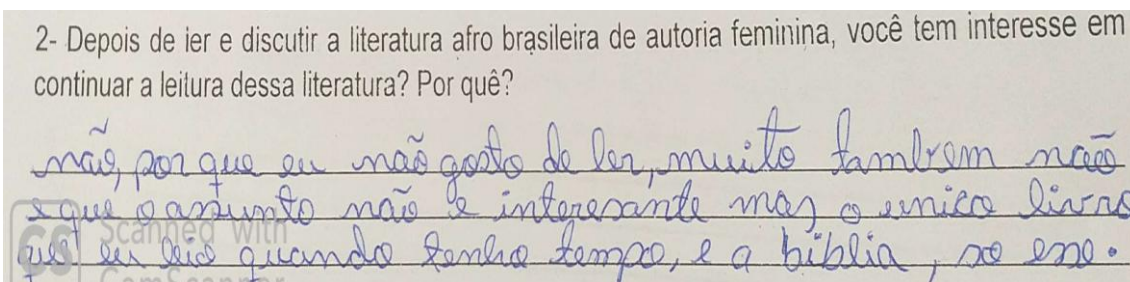 2- Depois de ier e discutir a literatura afro brasileira de autoria feminina, você tem interesse em
continuar a leitura dessa literatura? Por quê?
não, por que eu não gosto de ler, muito tambem não
e que o assunto não e interesante mas o unico livro
que eu leio quando tenho tempo, e a biblia, so esse.
CS Scanned with
CamScanner